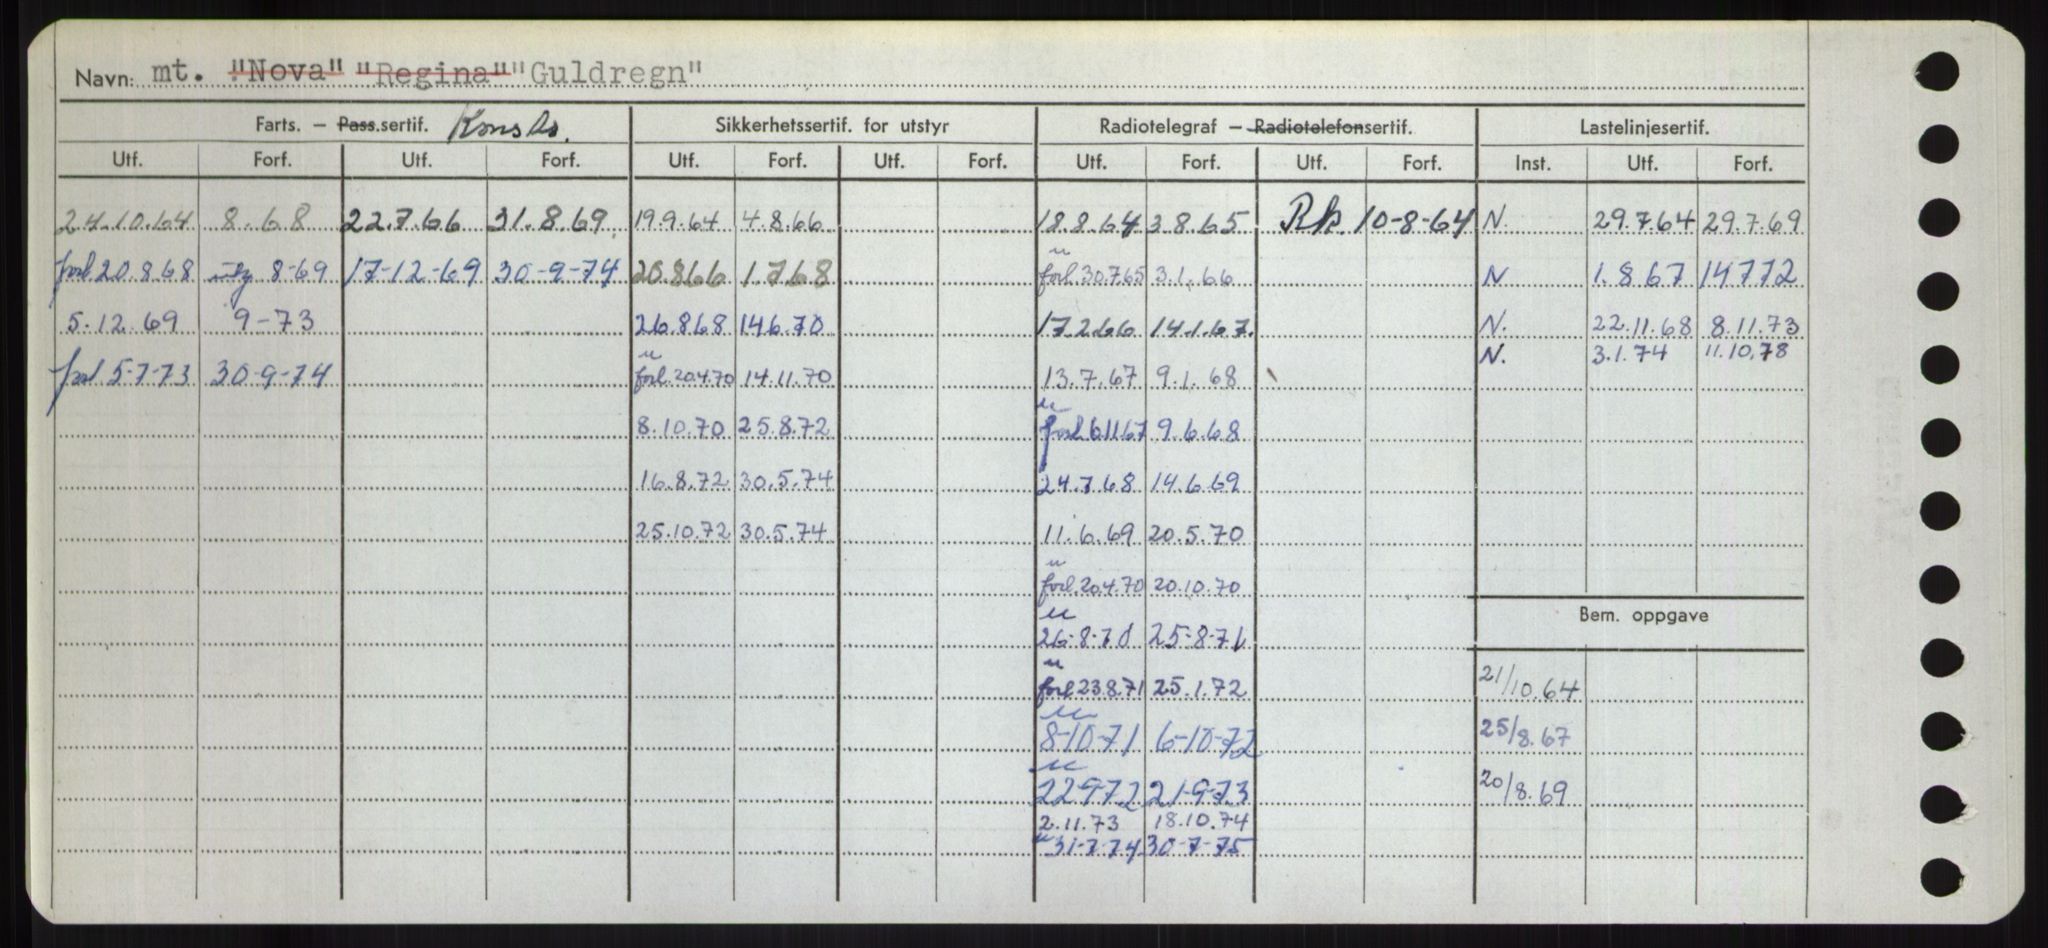 Navn: mt. "Nova" "Regina" "Guldregn"
Farts. — Pass.sertif. Sikkerhetssertif. for utstyr Radiotelegraf — Radiotelefonsertif. Lastelinjesertif.
Utf. Forf. Utf. Forf. Utf. Forf. Utf. Forf. Utf. Forf. Utf. Forf. Inst. Utf. Forf.
24.10.64 8.68 22.7.66 31.8.69. 19.9.64 4.8.66 18.8.64 3.8.65 Rk. 10-8-64 N. 29.7.64 29.7.69
forl 20.8.68 8-69 17-12-69 30-9-74 20.8.66 1.7.68 forl 30.7.65 3.1.66 N 1.8.67 14772
5.12.69 9-73 26.8.68 14.6.70 17.2.66 14.1.67. N. 22.11.68 8.11.73
N. 3.1.74 11.10.78
forl 5-7-73 30-9-74 forl. 20.4.70 14.11.70 13.7.67 9.1.68
8.10.70 25.8.72 forl 6.11.67 9.6.68
16.8.72 30.5.74 24.7.68 14.6.69
25.10.72 30.5.74 11.6.69 20.5.70
forl. 20.4.70 20.10.70
Bem. oppgave
26-8-70 25-8-71
forl 23.8.71 25.1.72 21/10.64
8-10-71 6-10-72 25/8.67
22972 21-9-73 20/8.69
2.11.73 18.10.74
31-7-74 30-7-75